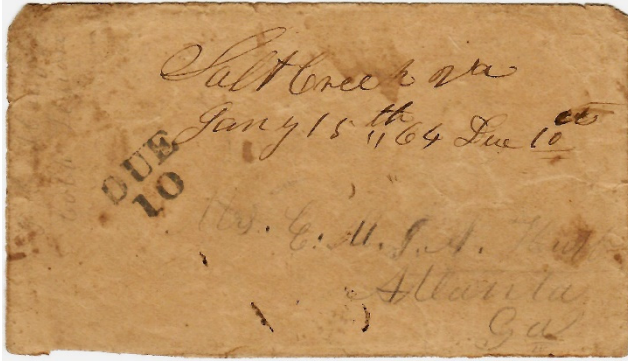 Salt Creek Va
Jany 15th "64 Due 10 cts
DUE
10
E. M.
Atlanta
Ga